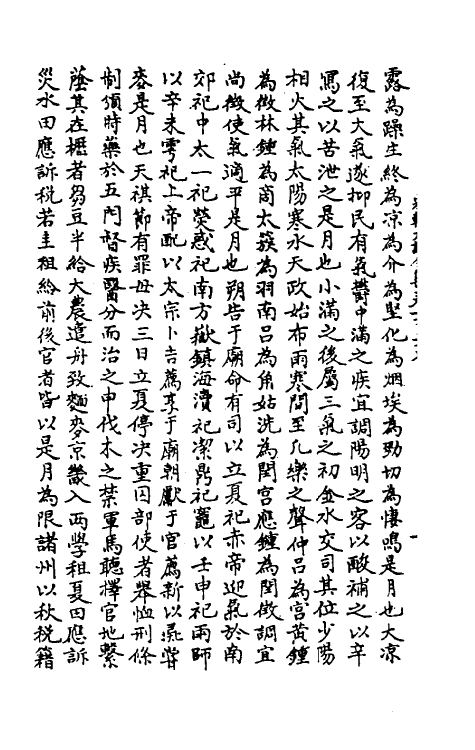 露為躁生終為凉為介為堅化為烟埃為勁切為悽鳴是月也大凉
復至大氣遂抑民有氣鬱中滿之疾宜調陽明之客以酸補之以辛
瀉之以苦泄之是月也小滿之後屬三氣之初金水交司其位少陽
相火其氣太陽寒水天政始布雨寒間至凡樂之聲仲呂為宮黃鍾
為徵林鍾為商太簇為羽南呂為角姑洗為閏宮應鍾為閏徵調宜
尚徵使氣適平是月也朔告于廟命有司以立夏祀赤帝迎氣於南
郊祀中太一祀熒惑祀南方嶽鎮海瀆祀潔鼎祀竈以壬申祀雨師
以辛未雩祀上帝配以太宗卜吉薦享于廟朝獻于官薦新以彘嘗
麥是月也天祺節有罪毋决三日立夏停决重囚部使者舉恤刑條
制頒時藥於五門督疾醫分而治之申伐木之禁軍馬聽擇官地繫
蔭其在櫪者芻豆半給大農遣舟致麵麥京畿入两學租夏田應訴
災水田應訴税若圭租給前後官者皆以是月為限諸州以秋税籍